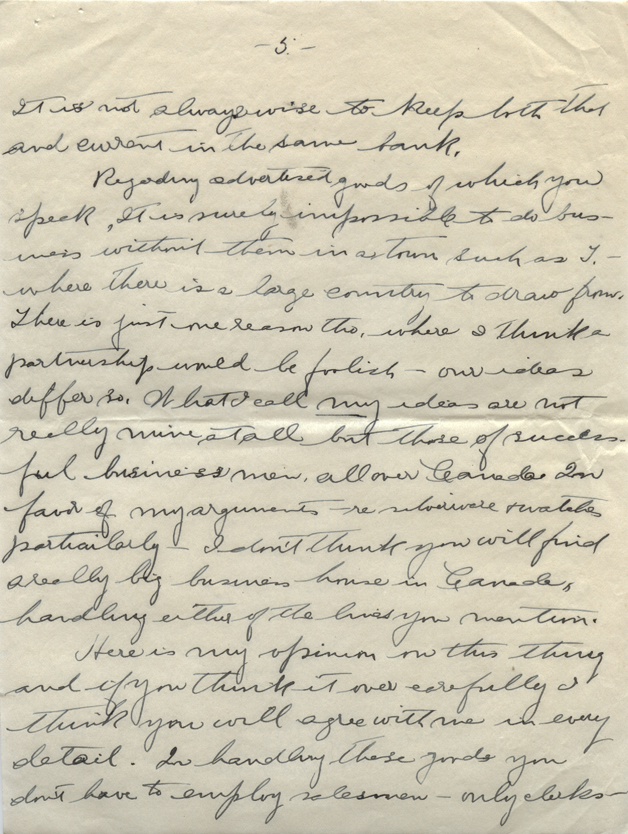 - 5 -
It is not always wise to keep both that
and current in the same bank.
Regarding advertised goods of which you
speak, It is surely impossible to do bus-
iness without them in a town such as T. -
where there is a large country to draw from.
There is just one reason tho, where I think a
partnership would be foolish - our ideas
differ so. What I call my ideas are not
really mine at all but those of success-
ful business men, all over Canada In
favor of my arguments - re silverware & watches
particularly - I don't think you will find
a really big business house in Canada,
handling either of the lines you mention.
Here is my opinion on this thing
and if you think it over carefully I
think you will agree with me in every
detail. In handling these goods you
don't have to employ salesmen - only clerks -